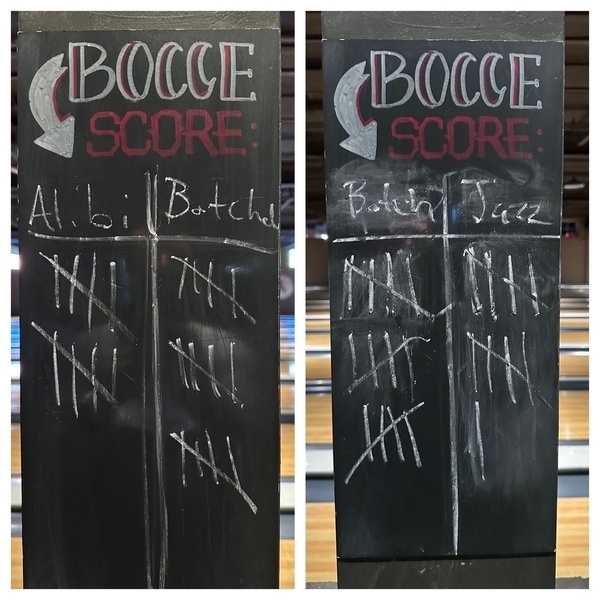 BOCCE
SCORE:
Alibi Batche
BOCCE
SCORE:
Botch Jazz